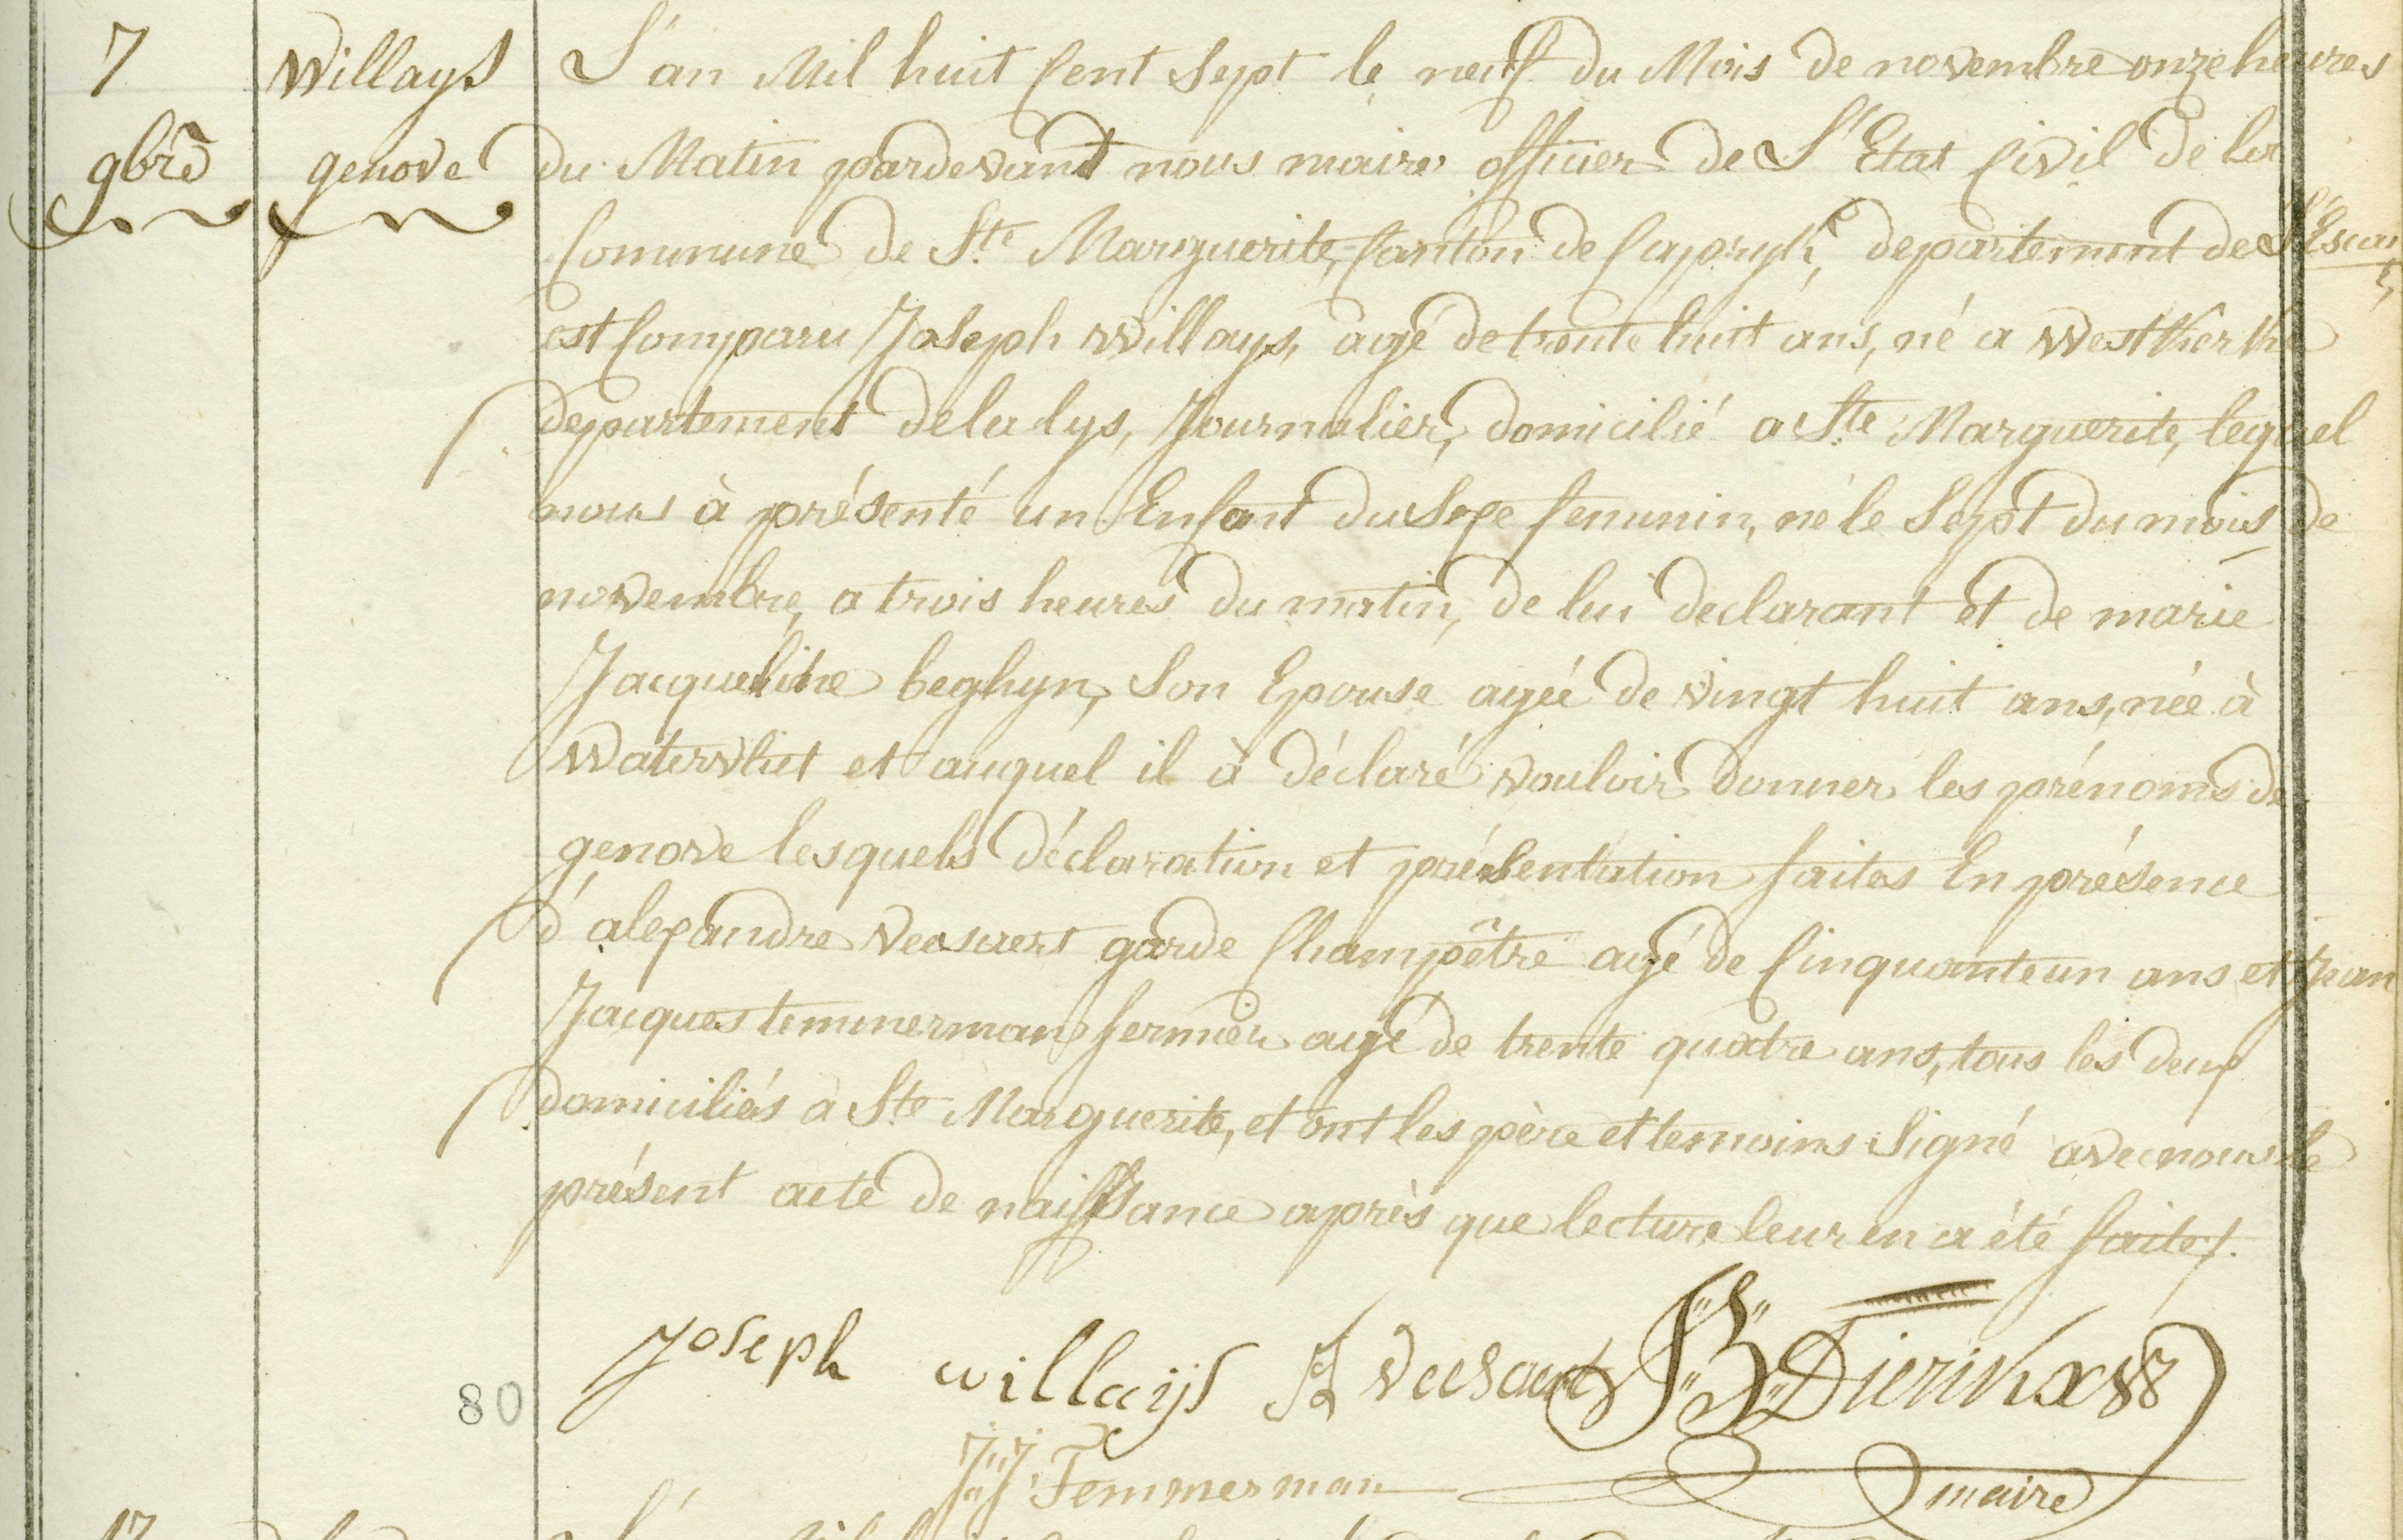 7
9bre
Willays
genove
L'an Mil huit Cent Sept le neuf du Mois de novembre onze heures
du Matin pardevant nous maire officier de L'Etat Civil de la
Commune de Ste Marguerite, Canton de Capryk, departement de L'Escaut,
est Comparu Joseph Willays, agé de trente huit ans, né a Westkerke
departement de la lys, Journalier, domicilié a Ste Marguerite, lequel
nous à présenté un Enfant du Sexe feminin, né le Sept du mois de
novembre, a trois heures du matin, de lui declarant et de marie
Jacqueline beghyn, Son Epouse ageé de vingt huit ans, née à
Watervliet et auquel il à déclaré vouloir donner les prénoms de
genove lesquels déclaration et présentation faites En présence
d'alexandre garde Champêtre agé de Cinquante un ans et Jean
Jacques temmerman fermier agé de trente quatre ans, tous les deux
domiciliés à Ste Marguerite, et ont les père et temoins Signé avec nous le
présent acte de naissance après que lecture leur en a été faite.
Joseph willaijs
JJ Temmerman
maire
80